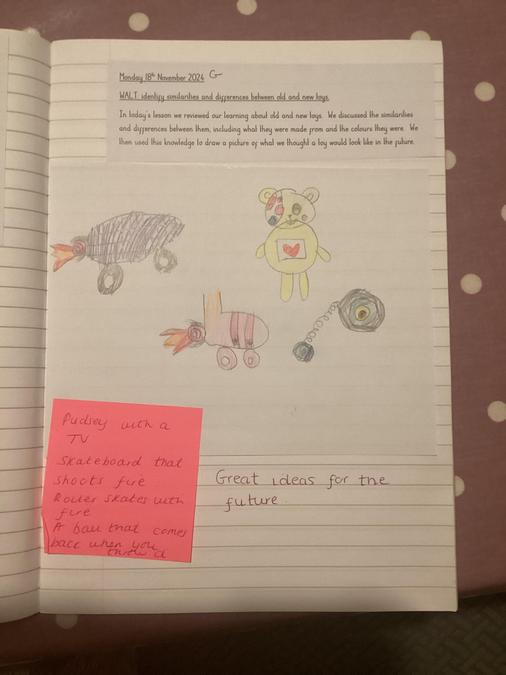 Monday 18th November 2024 G
WALT: identify similarities and differences between old and new toys.
In today's lesson we reviewed our learning about old and new toys. We discussed the similarities
and differences between them, including what they were made from and the colours they were. We
then used this knowledge to draw a picture of what we thought a toy would look like in the future.
Pudsey with a
TV
Skateboard that
shoots fire
Roller skates with
fire
A ball that comes
back when you
throw it
Great ideas for the
future